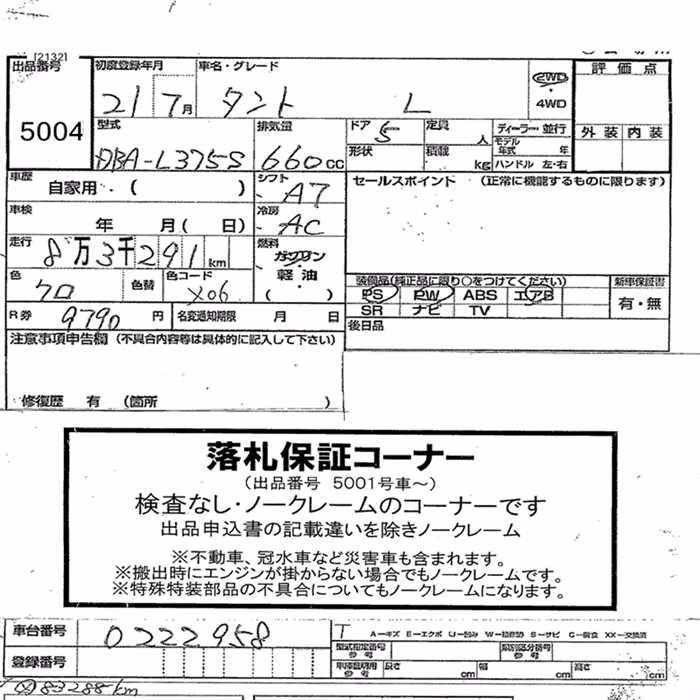 [2132]
出品番号 5004
初度登録年月 21 7月
車名・グレード タント L
2WD・4WD
評価点
外装 内装
型式 DBA-L375S
排気量 660cc
ドア 5
形状
定員 人
積載 kg
ディーラー・並行
モデル年式 年
ハンドル 左・右
車歴 自家用・( )
シフト A7
セールスポイント (正常に機能するものに限ります)
車検 年 月( 日)
冷房 AC
走行 8万3千291km
燃料 ガソリン・軽油・( )
色 クロ
色替
色コード X06
装備品(純正品に限り○をつけてください)
PS PW ABS エアB
SR ナビ TV
新車保証書 有・無
R券 9790円
名変通知期限 月 日
後日品
注意事項申告欄 (不具合内容等は具体的に記入して下さい)
修復歴 有 (箇所 )
落札保証コーナー
(出品番号 5001号車〜)
検査なし・ノークレームのコーナーです
出品申込書の記載違いを除きノークレーム
※不動車、冠水車など災害車も含まれます。
※搬出時にエンジンが掛からない場合でもノークレームです。
※特殊特装部品の不具合についてもノークレームになります。
車台番号 0222958
T
A−キズ E−エクボ U−凹み W−補修跡 S−サビ C−腐食 XX−交換済
登録番号
型式指定番号 参考
類別区分番号 参考
車検証期用 参考 長さ cm 幅 cm 高さ cm
83288km